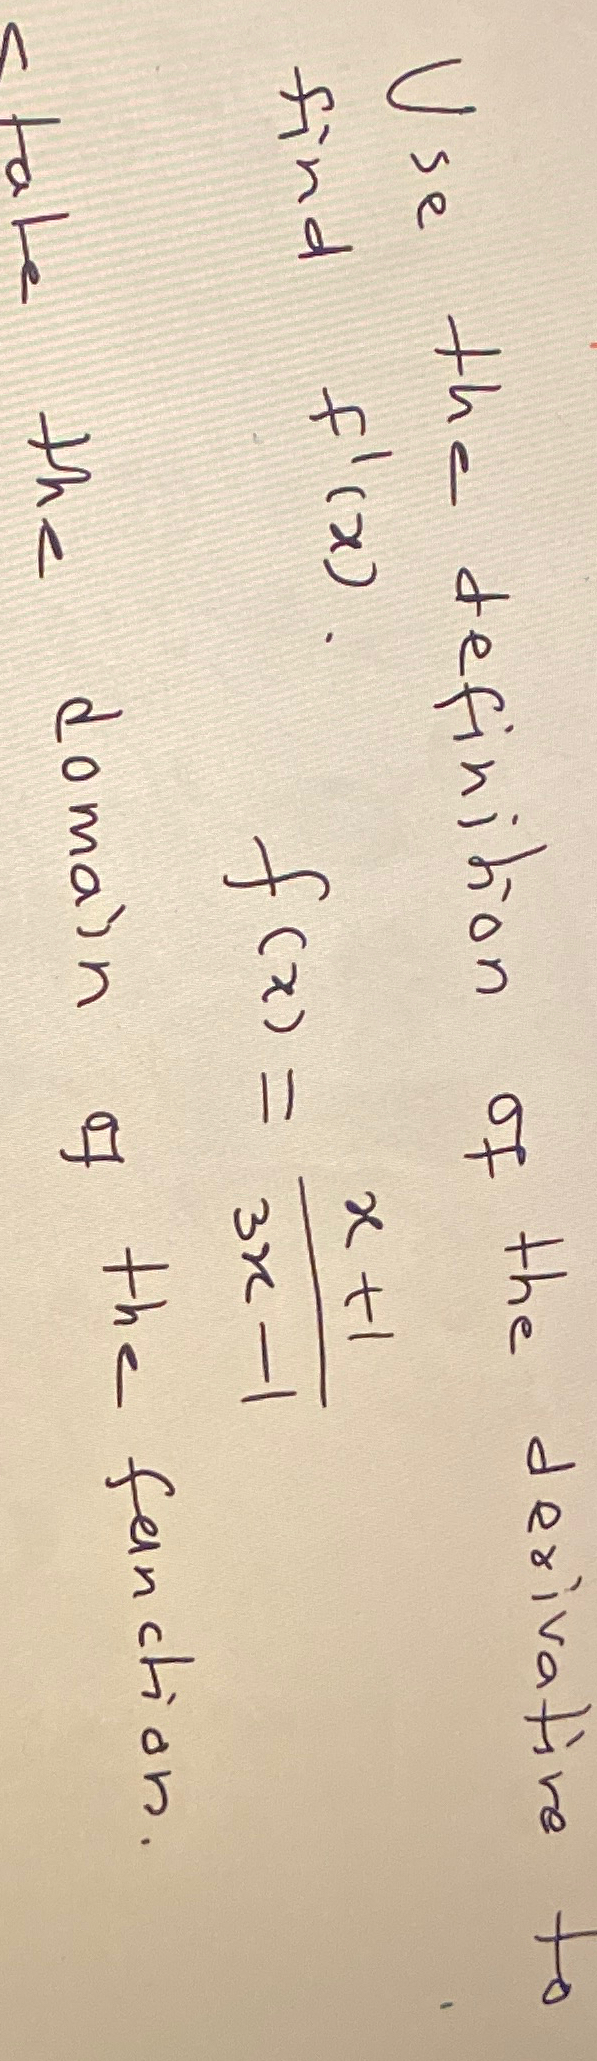 Use the definition of the derivative to
find f'(x).
f(x) = x+1 / 3x-1
state the domain of the function.